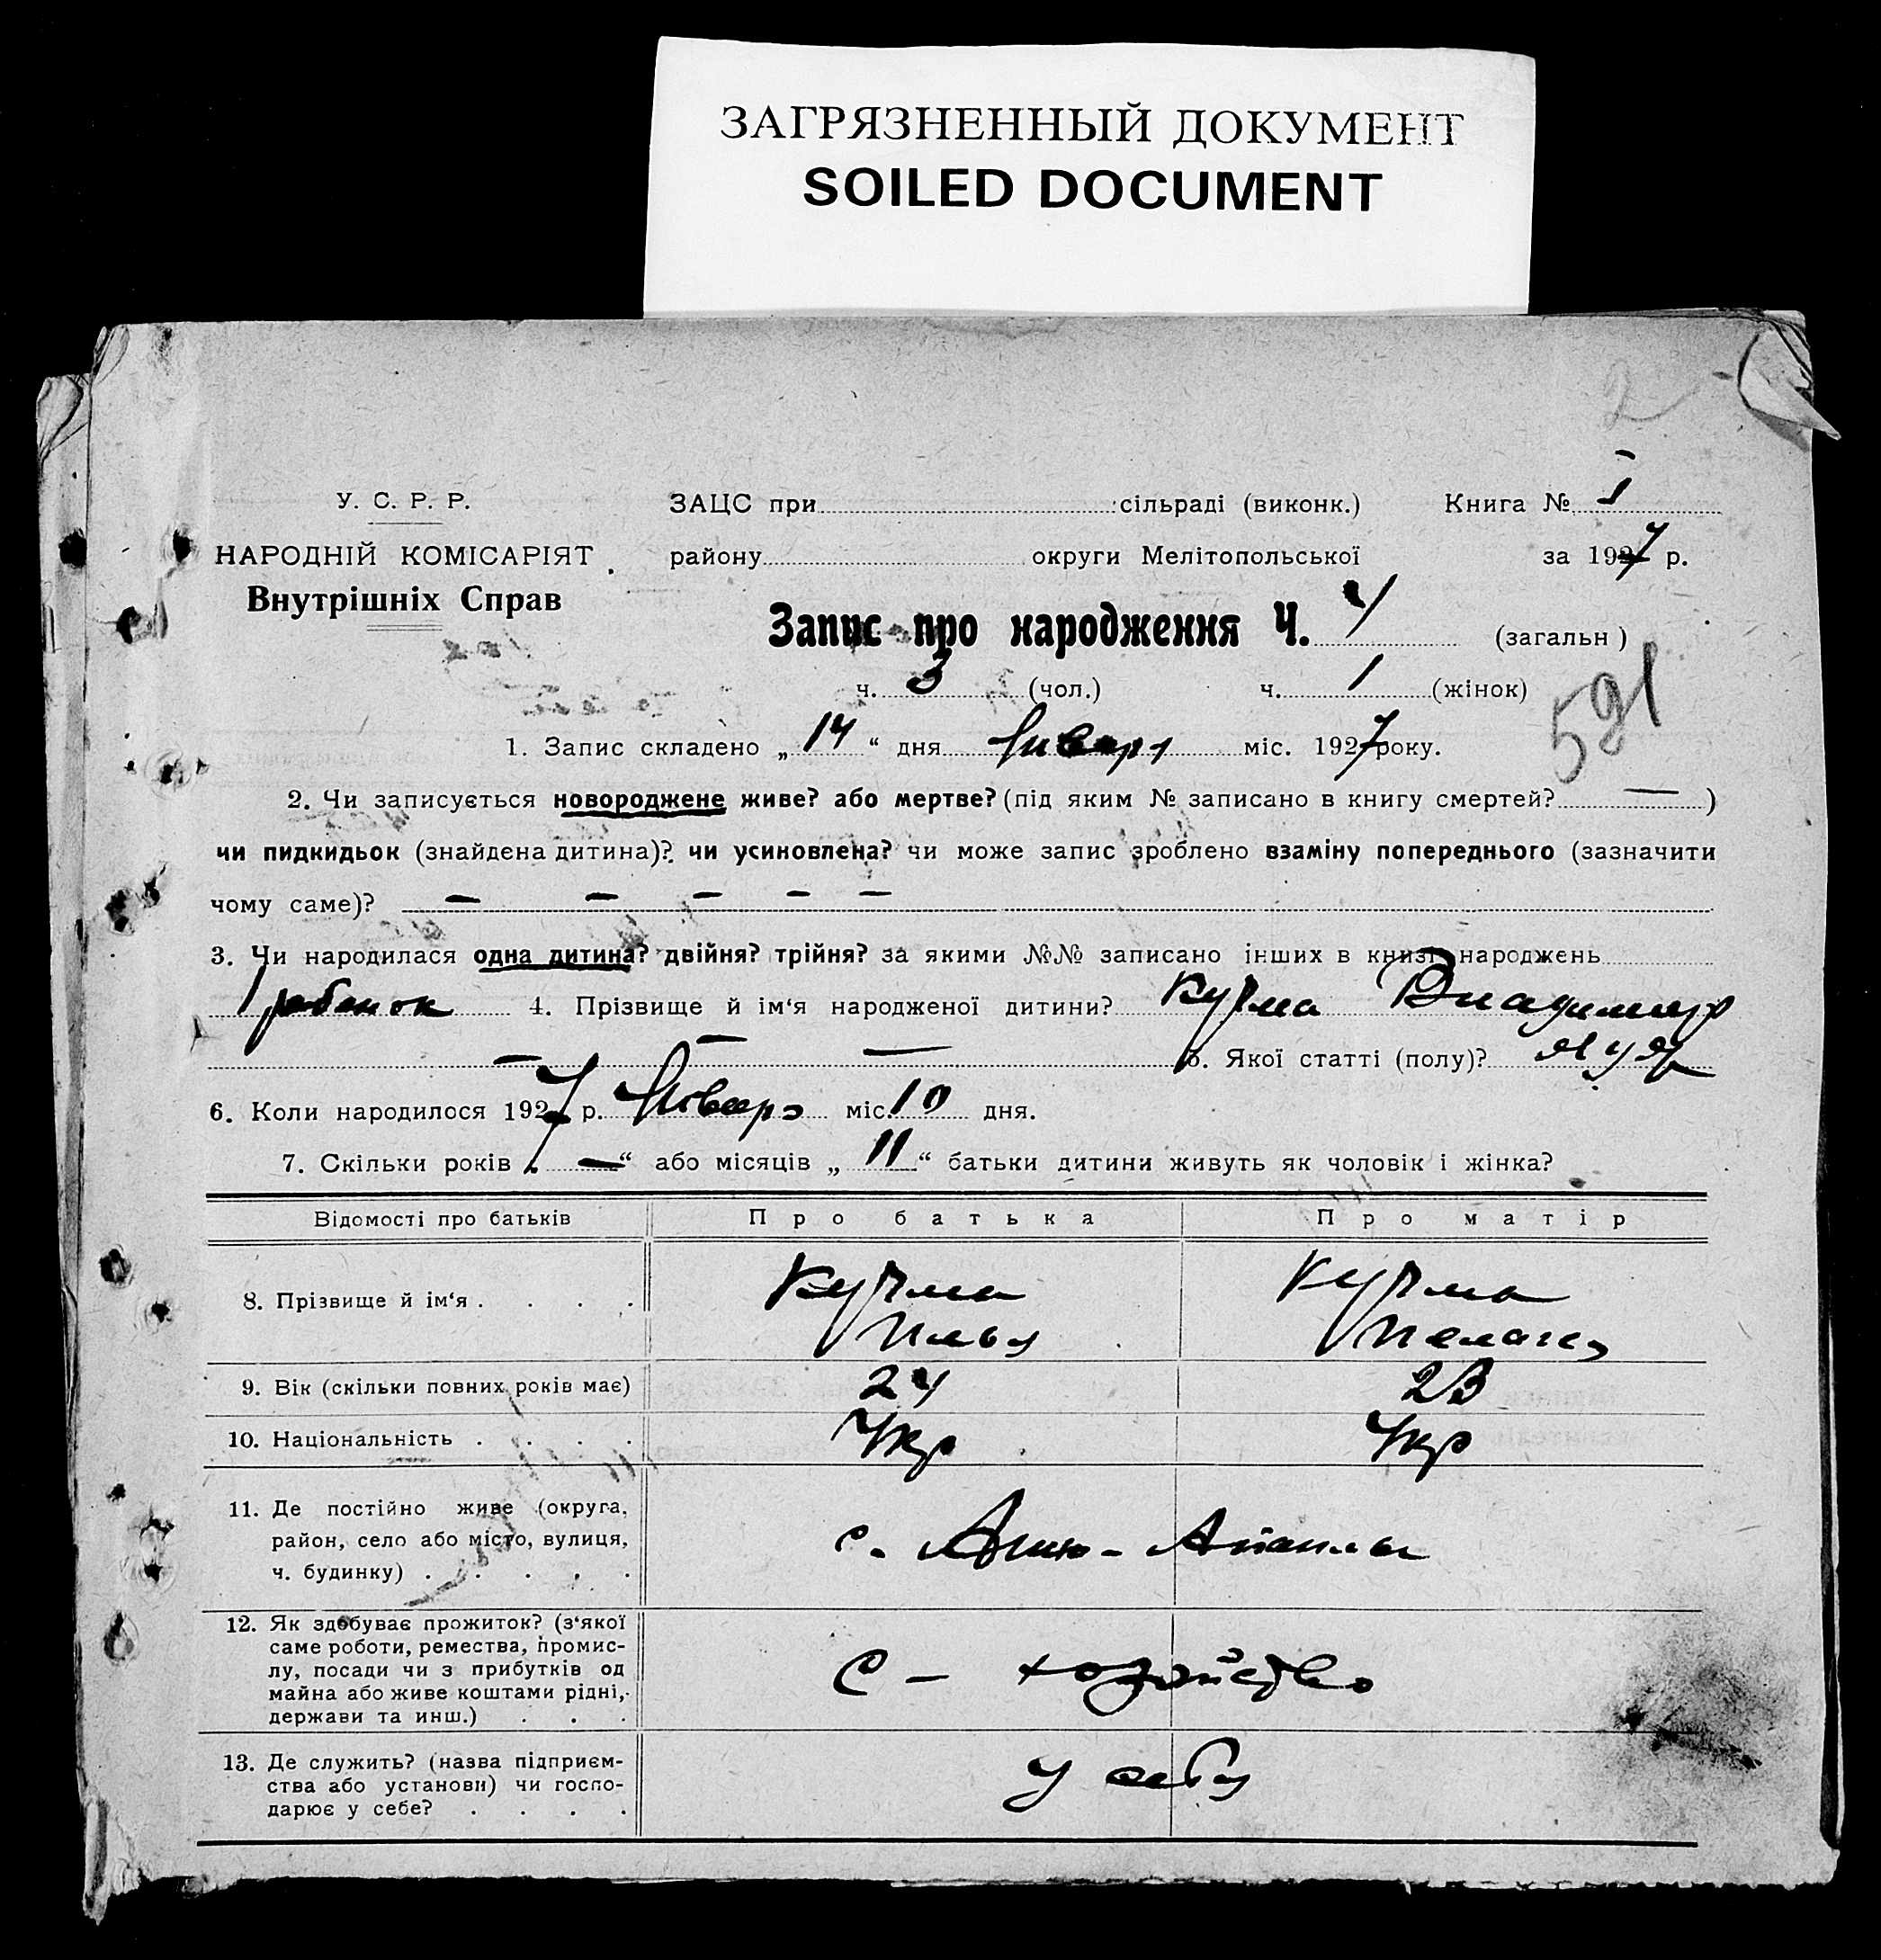 ЗАГРЯЗНЕННЫЙ ДОКУМЕНТ
SOILED DOCUMENT
2
У. С. Р. Р.
НАРОДНІЙ КОМІСАРІЯТ
Внутрішніх Справ
ЗАЦС при сільраді (виконк.) Книга № 1
району округи Мелітопольської за 1927 р.
Запис про народження Ч. 4 (загальн )
ч. 3 (чол.) ч. 1 (жінок)
591
1. Запис складено „ 14 “ дня Января міс. 1927 року.
2. Чи записується новороджене живе? або мертве? (під яким № записано в книгу смертей? — )
чи пидкидьок (знайдена дитина)? чи усиновлена? чи може запис зроблено взаміну попереднього (зазначити
чому саме)? — — — — —
3. Чи народилася одна дитина? двійня? трійня? за якими №№ записано інших в книзі народжень
1 ребенок 4. Прізвище й ім‘я народженої дитини? Владимир
— — — 5. Якої статті (полу)?
6. Коли народилося 1927 р. Января міс. 10 дня.
7. Скільки років „ — “ або місяців „ 11 “ батьки дитини живуть як чоловік і жінка?
Відомості про батьків Про батька Про матір
8. Прізвище й ім‘я . . . .
Илья Пелагея
9. Вік (скільки повних років має) 24 23
10. Національність . . . . Укр Укр
11. Де постійно живе (округа,
район, село або місто, вулиця,
ч. будинку) . . . . . с.
12. Як здобуває прожиток? (з‘якої
саме роботи, ремества, промис-
лу, посади чи з прибутків од
майна або живе коштами рідні,
держави та инш.) . . . С – хозяйство
13. Де служить? (назва підприєм-
ства або установи) чи госпо-
дарює у себе? . . . . У себя